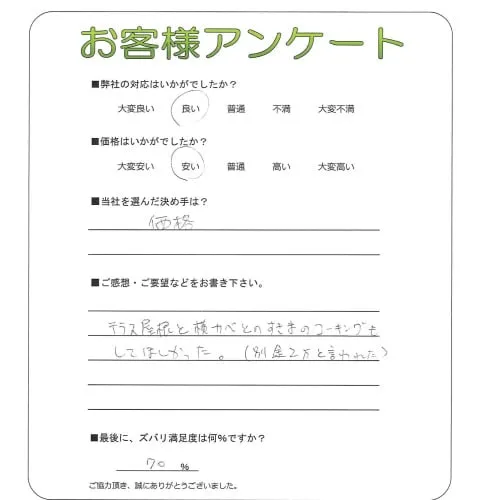 お客様アンケート
■弊社の対応はいかがでしたか？
大変良い 良い 普通 不満 大変不満
■価格はいかがでしたか？
大変安い 安い 普通 高い 大変高い
■当社を選んだ決め手は？
価格
■ご感想・ご要望などをお書き下さい。
テラス屋根と横カベとのすきまのコーキングも
してほしかった。(別途2万と言われた)
■最後に、ズバリ満足度は何%ですか？
70 %
ご協力頂き、誠にありがとうございました。